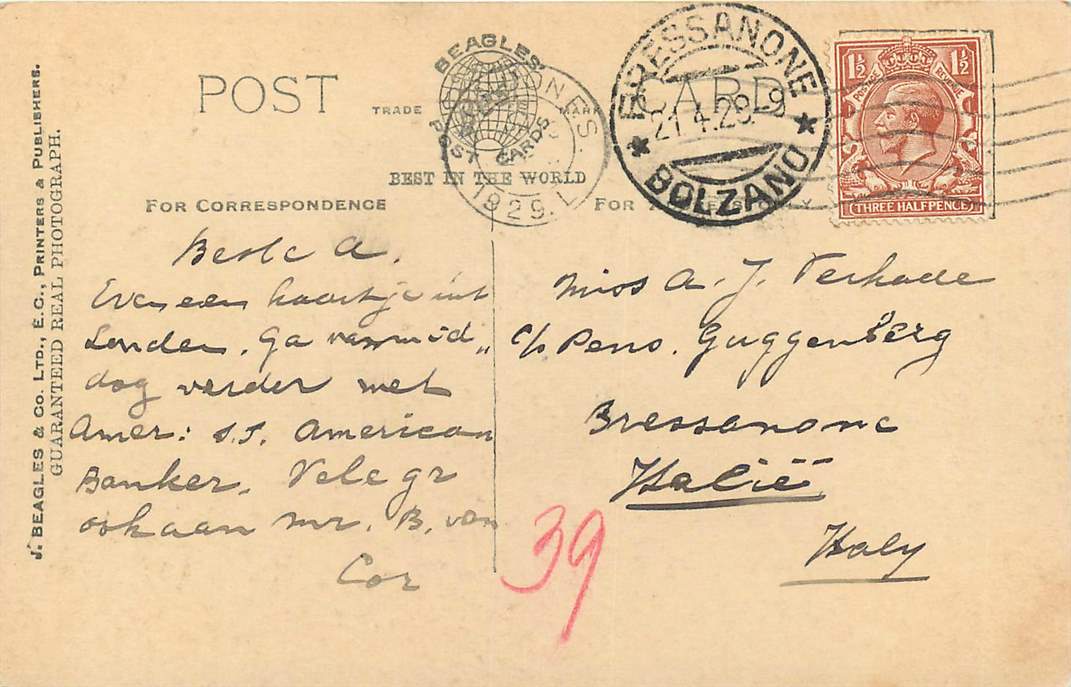 POST CARD
TRADE MARK
BEAGLES
POST CARDS
BEST IN THE WORLD
FOR CORRESPONDENCE
FOR
1929.
BRESSANONE
21.4.29.9
* BOLZANO *
1½ 1½
POSTAGE REVENUE
THREE HALFPENCE
J. BEAGLES & CO. LTD., E.C., PRINTERS & PUBLISHERS.
GUARANTEED REAL PHOTOGRAPH.
Beste A.
Even een kaartje uit
Londen. Ga vanmid„
dag verder met
Amer: s.s. American
Banker. Vele gr
ook aan mr. B. van
Cor
Miss A. J. Verhade
c/o Pens. Guggenberg
Bressanone
Italië
Italy
39